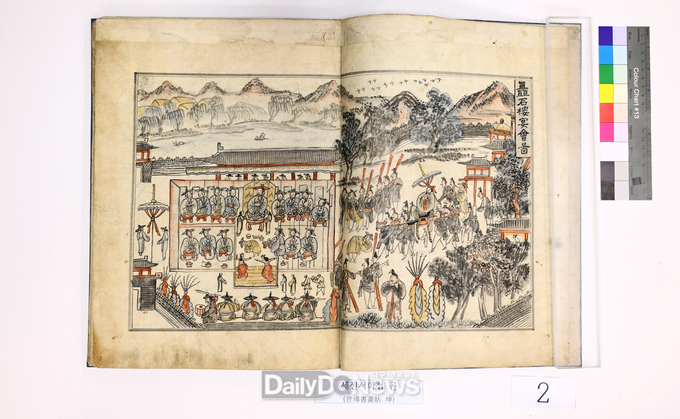 矗石樓宴會圖
Colour Chart #13
세전서화첩
(世傳書畫帖 坤)
2